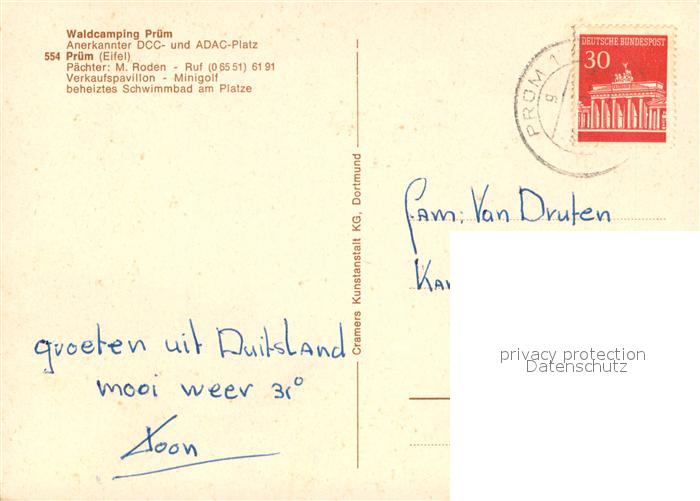 Waldcamping Prüm
Anerkannter DCC- und ADAC-Platz
554 Prüm (Eifel)
Pächter: M. Roden - Ruf (0 65 51) 61 91
Verkaufspavillon - Minigolf
beheiztes Schwimmbad am Platze
DEUTSCHE BUNDESPOST
30
PRÜM 1
9
Cramers Kunstanstalt KG, Dortmund
Fam: Van Druten
groeten uit Duitsland
mooi weer 31°
Toon
privacy protection
Datenschutz